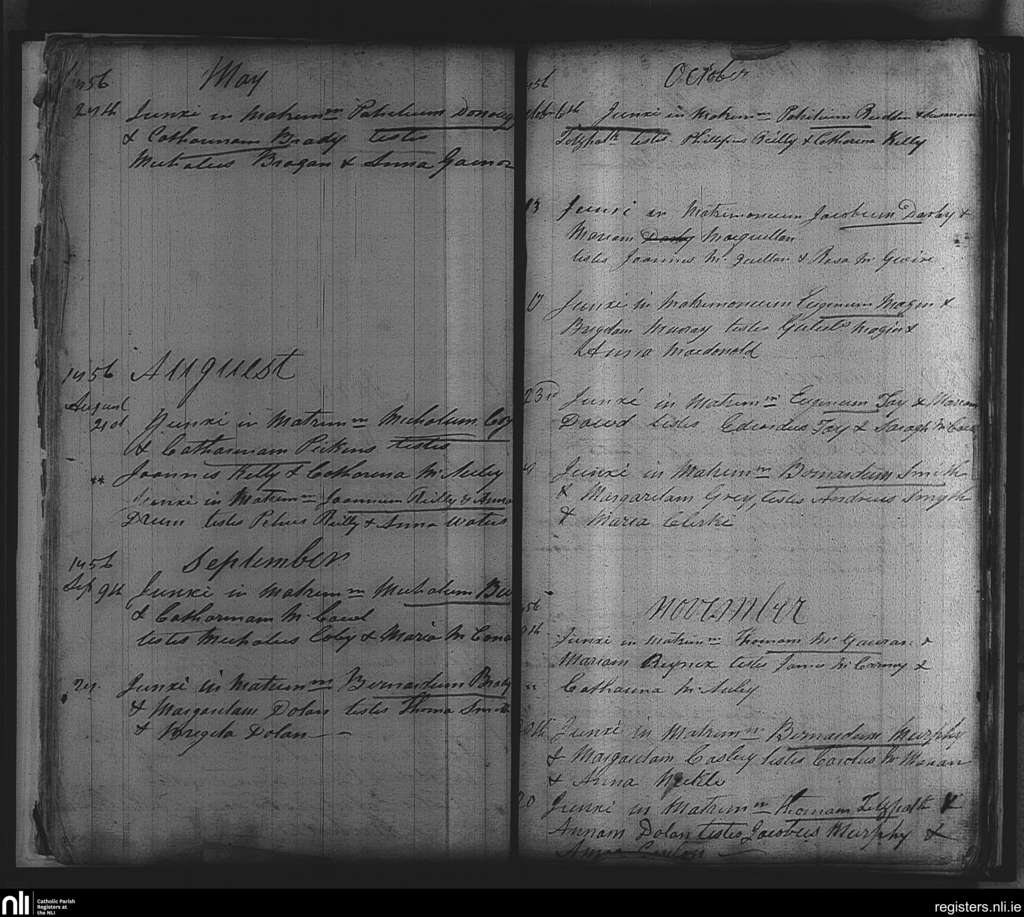 1856 May
27th Junxi in Matrim^m Patritium Donoug
& Catharinam Brady testes
Michalius Bragan & Anna Gaenor
1856 August
August
21st Junxi in Matrim^m Michalum Coy
& Catharinam Pickens testes
Joannis Kelly & Catharena McAuley
Junxi in Matrim^m Joannium Reilly & Anna
Drum testes Petrus Reilly & Anna Waters
1856 September
Sep 9th Junxi in Matrim^m Michalum
& Catharinam McCaul
testes Michalius Coby & Maria McCana
Junxi in Matrim^m Bernardum Brady
& Margaretam Dolan testes Thoma Smith
& Bregeta Dolan
October
6th Junxi in Matrim^m Patritium
testes Phillipus Reilly & Catharina Kelly
13 Junxi in Matrimoneum Jacobum Darby &
Mariam Darby Macquillan
testes Joannes McQuillan & Rosa McGuire
17 Junxi in Matrimoneum Eugenium Magin &
Bregdam Murray testes Magin &
Anna Macdonald
23rd Junxi in Matrim^m Eugenium Foy & Mariam
Dowd testes Edwardus Foy & Saragh
Junxi in Matrim^m Bernardum Smith
& Margaretam Grey testes Andreus Smyth
& Maria Clerke
November
Junxi in Matrim^m Thomam McGauran &
Mariam Reynex testes James &
Catharina McAuley
Junxi in Matrim^m Bernardum Murphy
& Margaretam Cosley testes Carolus McManan
& Anna
Junxi in Matrim^m Thomam Fitzpatk &
Annam Dolan testes Jacobus Murphy &
Anna
nli Catholic Parish
Registers at
the NLI
registers.nli.ie